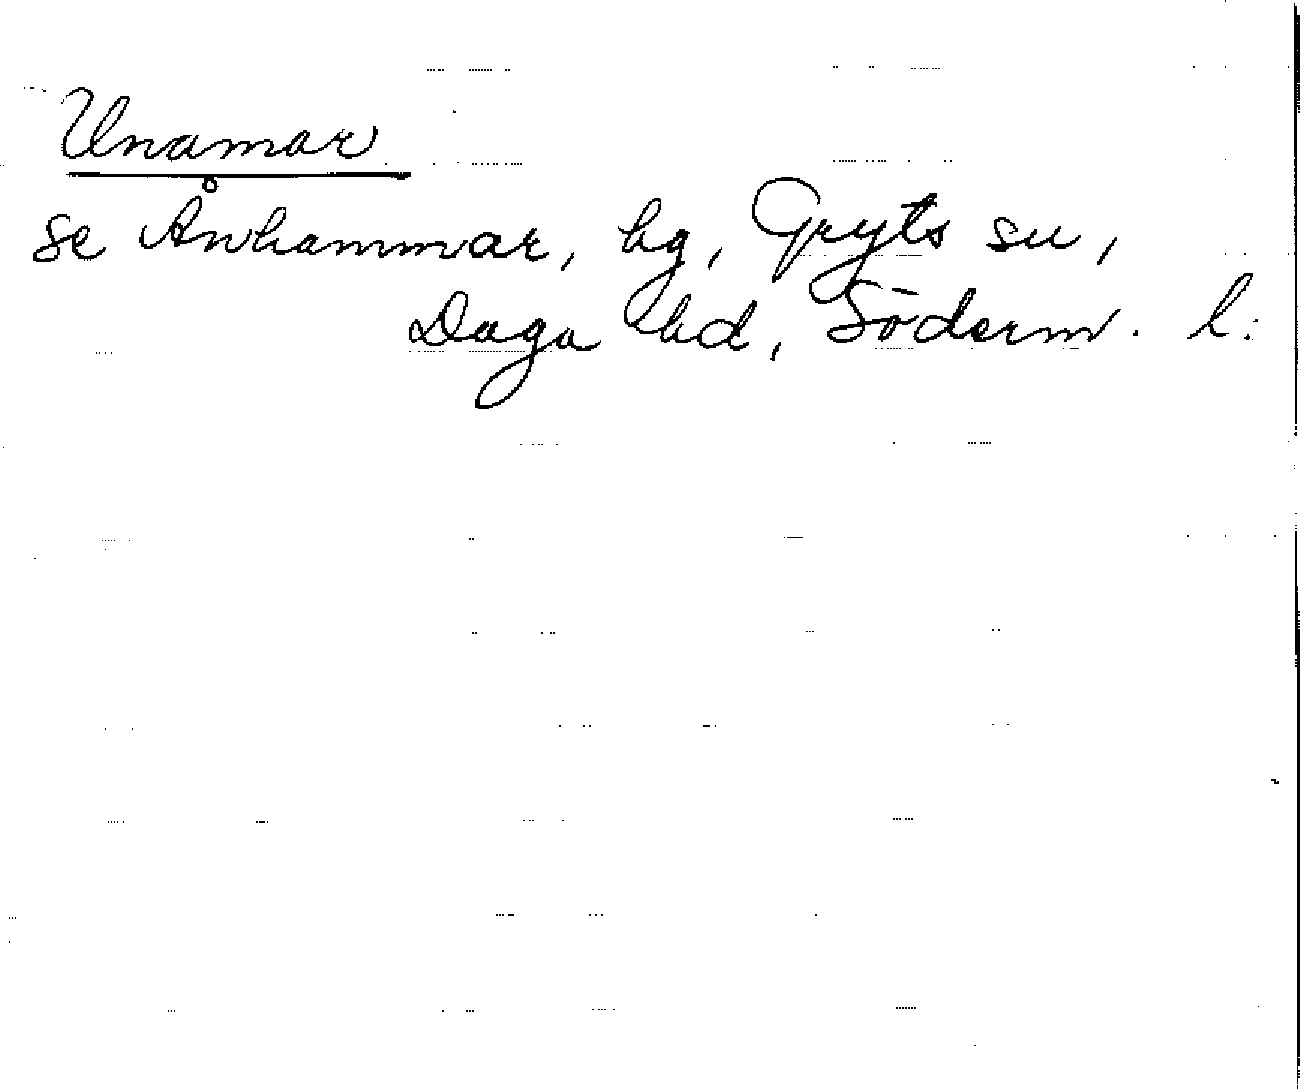 Unamar
se Ånhammar, hg, Gryts su,
Daga hd, Söderm. l.